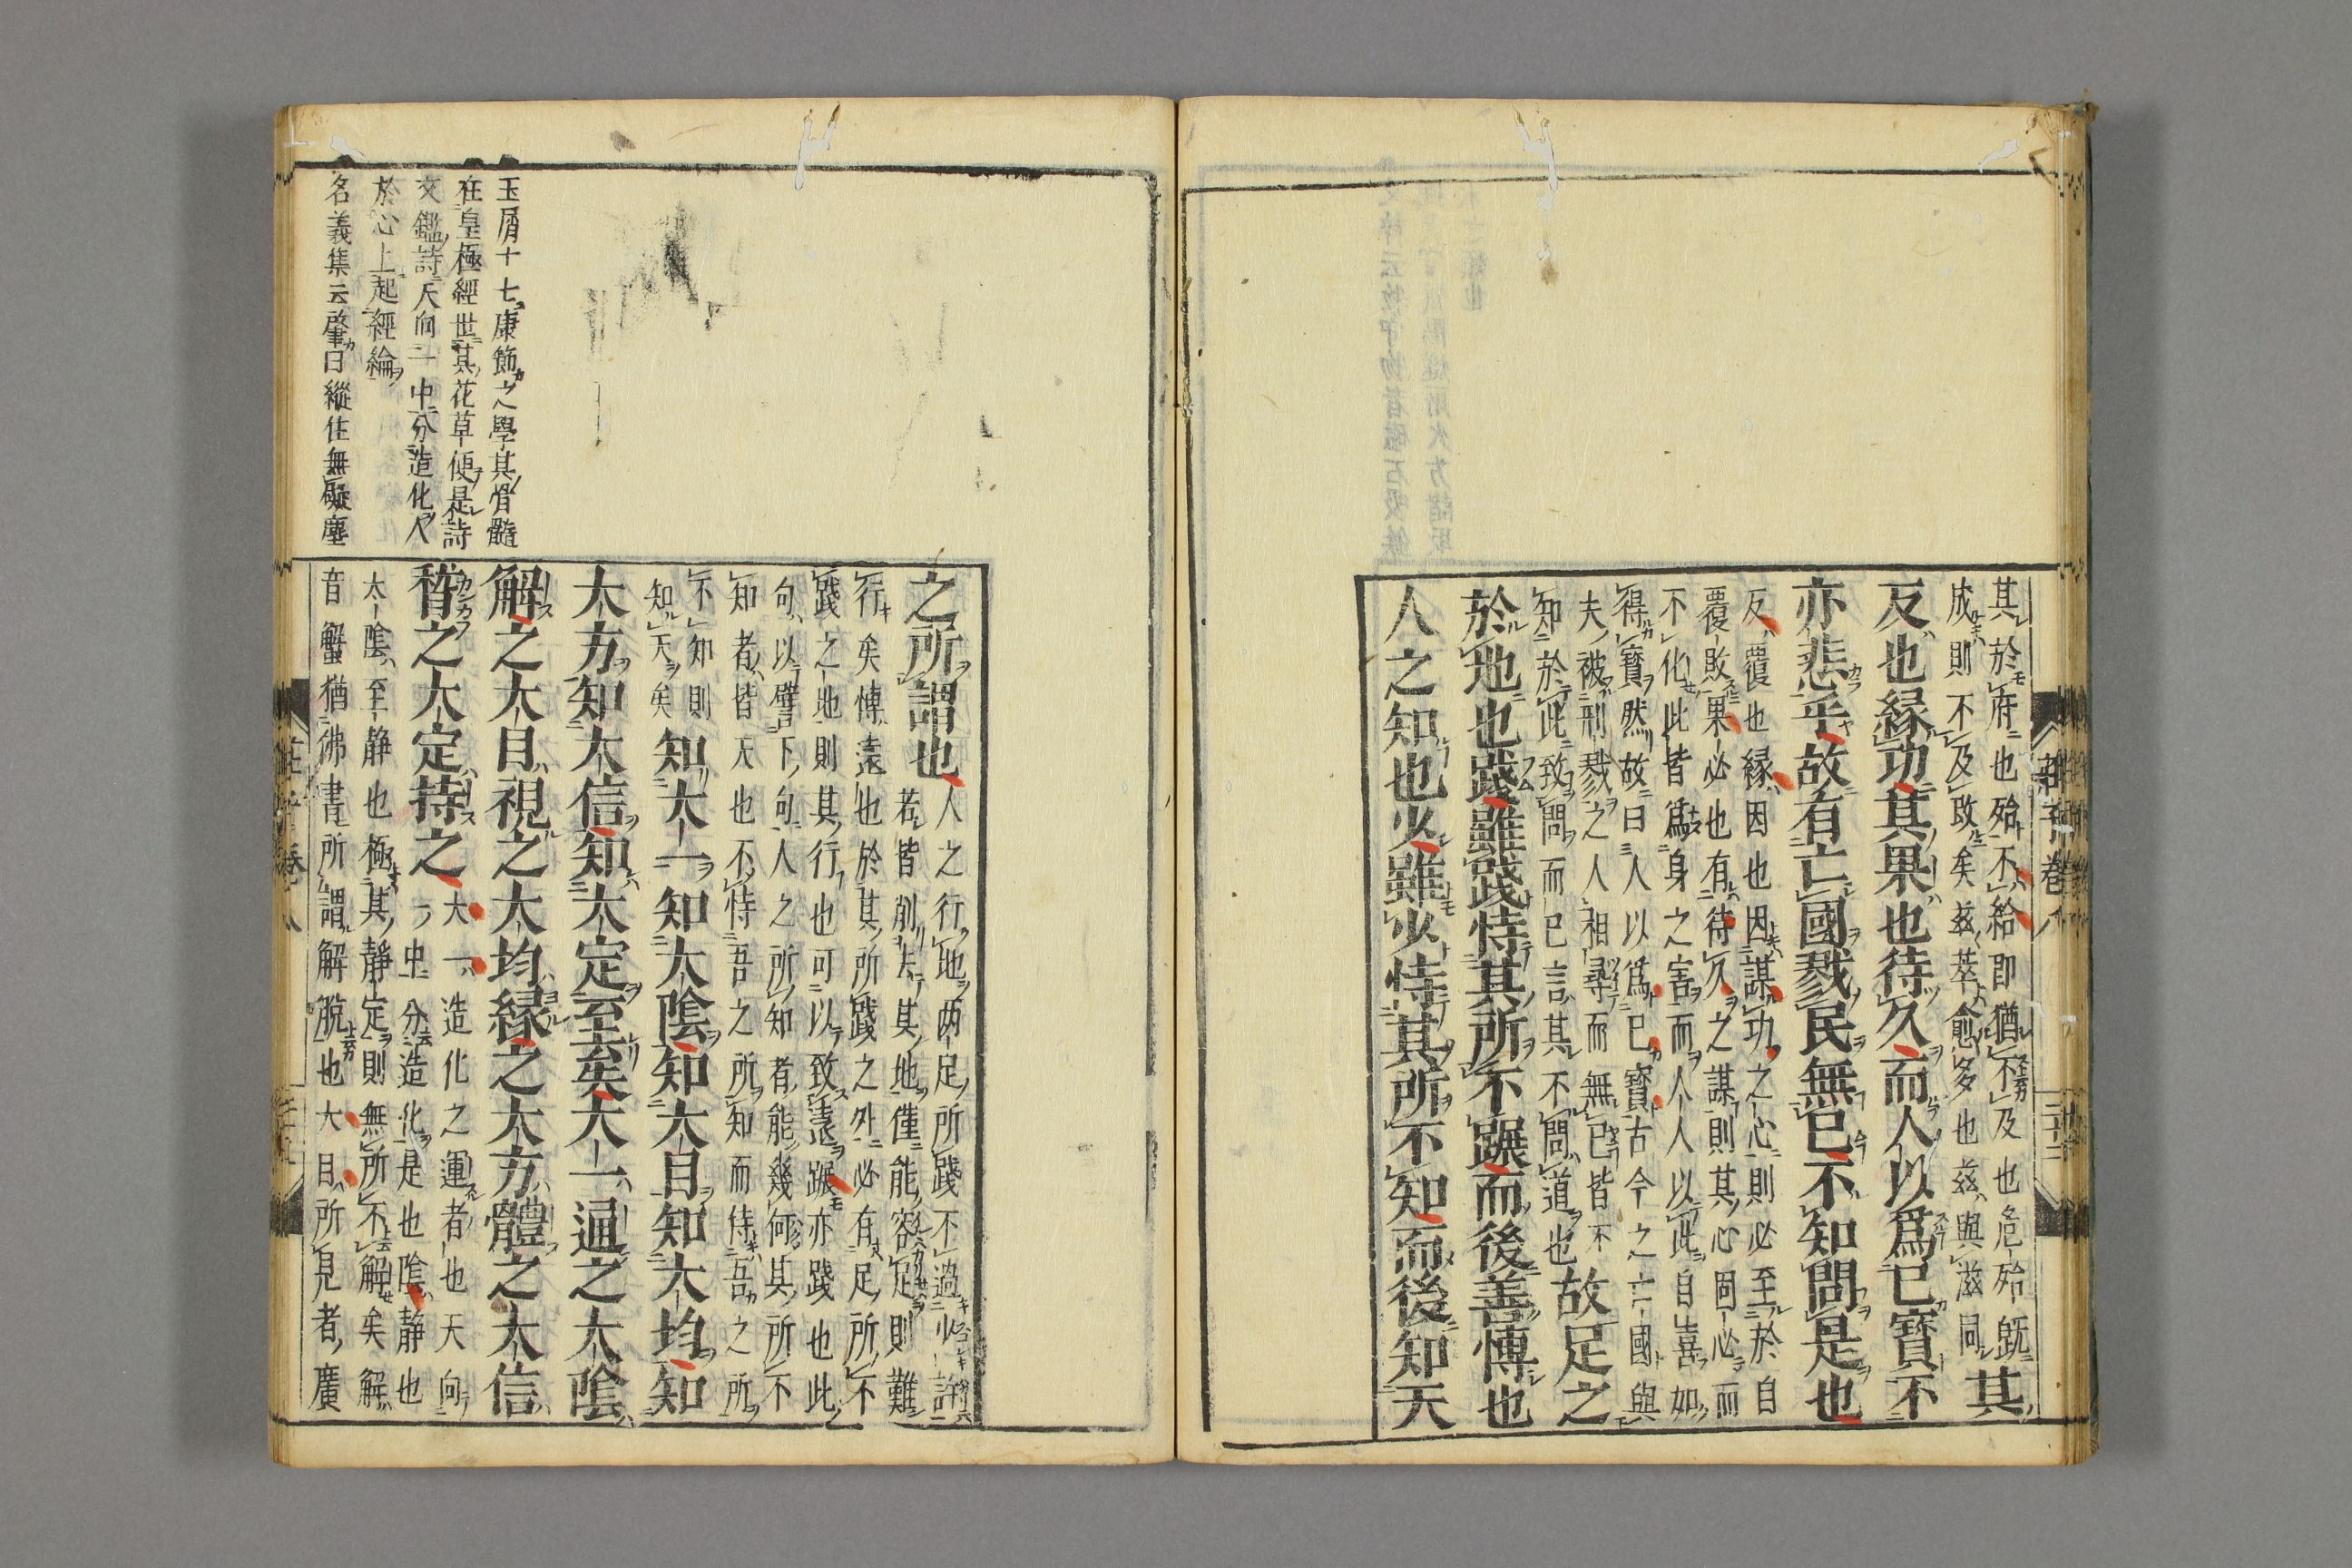 其於府也殆不給即猶不及也危殆既其
成則不及改矣兹萃愈多也兹與滋同
反也緣功其果也待久而人以爲已寶不
亦悲乎故有亡國戮民無已不知問是也
反覆也緣因也因謀功之心則必至於自
覆敗果必也有待久之謀則其心固必而
不化此皆爲身之害而人人以此自喜如
得寶然故曰人以爲已寶古今之亡國與
夫被刑戮之人相尋而無已皆不
知於此致問而已言其不問道也故足之
於地也踐雖踐恃其所不蹍而後善愽也
人之知也少雖少恃其所不知而後知天
莊子卷八
三十二
之所謂也人之行地兩足所踐不過少許
若皆削去其地僅能容足則難
行矣愽遠也於其所踐之外必有足所不
踐之地則其行也可以致遠蹍亦踐也此
句以譬下句人之所知者能幾何其所不
知者皆天也不恃吾之所知而恃吾之所
不知則
知天矣知大一知大陰知大目知大均知
大方知大信知大定至矣大一通之大陰
解之大目視之大均緣之大方體之大信
稽之大定持之大一造化之運者也天向
一中分造化是也陰靜也
太陰至靜也極其靜定則無所不解矣解
音蟹猶佛書所謂解脫也大目所見者廣
玉屑十七康節之學其骨髓
在皇極經世其花草便是詩
文鑑詩天向一中分造化人
於心上起經綸
名義集云肇曰縱任無礙塵